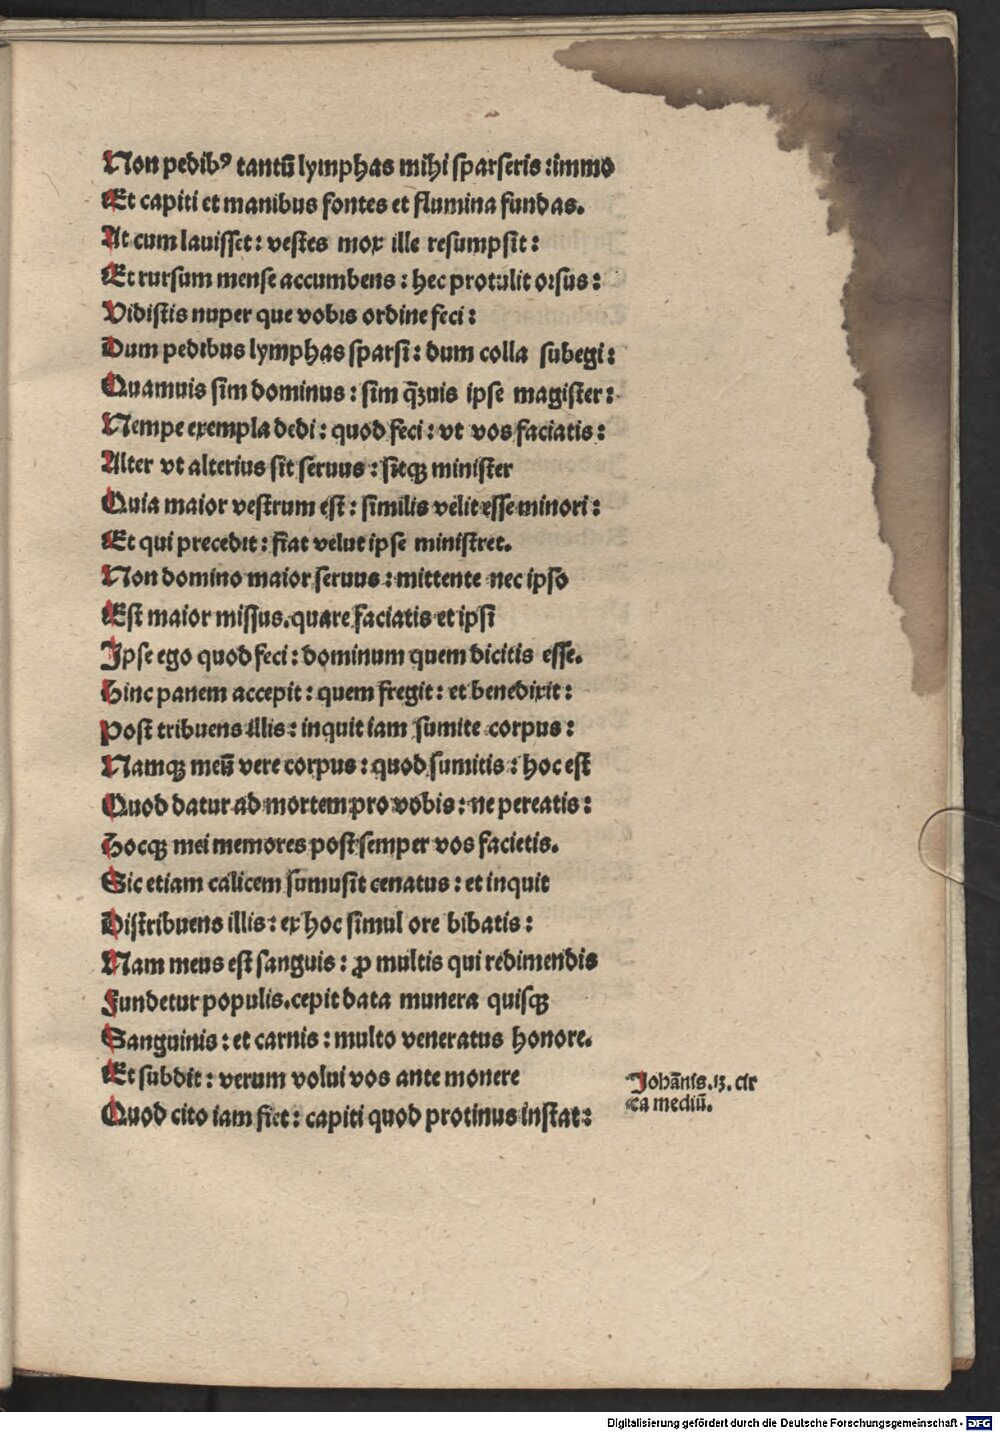 Non pedibꝰ tantū lymphas mihi ſparſeris : immo
Et capiti et manibus fontes et flumina fundas.
At cum lauiſſet : veſtes mox ille reſumpſit :
Et rurſum menſe accumbens : hec protulit orſus :
Vidiſtis nuper que vobis ordine feci :
Dum pedibus lymphas ſparſi : dum colla ſubegi :
Quamuis ſim dominus : ſim q̄ꝫuis ipſe magiſter :
Nempe exempla dedi : quod feci : vt vos faciatis :
Alter vt alterius ſit ſeruus : ſitqꝫ miniſter
Quia maior veſtrum eſt : ſimilis velit eſſe minori :
Et qui precedit : fiat velut ipſe miniſtret.
Non domino maior ſeruus : mittente nec ipſo
Eſt maior miſſus. quare faciatis et ipſi
Ipſe ego quod feci : dominum quem dicitis eſſe.
Hinc panem accepit : quem fregit : et benedixit :
Poſt tribuens illis : inquit iam ſumite corpus :
Namqꝫ meū vere corpus : quod ſumitis : hoc eſt
Quod datur ad mortem pro vobis : ne pereatis :
Hocqꝫ mei memores poſt ſemper vos facietis.
Sic etiam calicem ſumuſit cenatus : et inquit
Diſtribuens illis : ex hoc ſimul ore bibatis :
Nam meus eſt ſanguis : ꝓ multis qui redimendis
Fundetur populis. cepit data munera quiſqꝫ
Sanguinis : et carnis : multo veneratus honore.
Et ſubdit : verum volui vos ante monere
Quod cito iam fiet : capiti quod protinus inſtat :
Johānis. 13. cir
ca mediū.
Digitalisierung gefördert durch die Deutsche Forschungsgemeinschaft - DFG